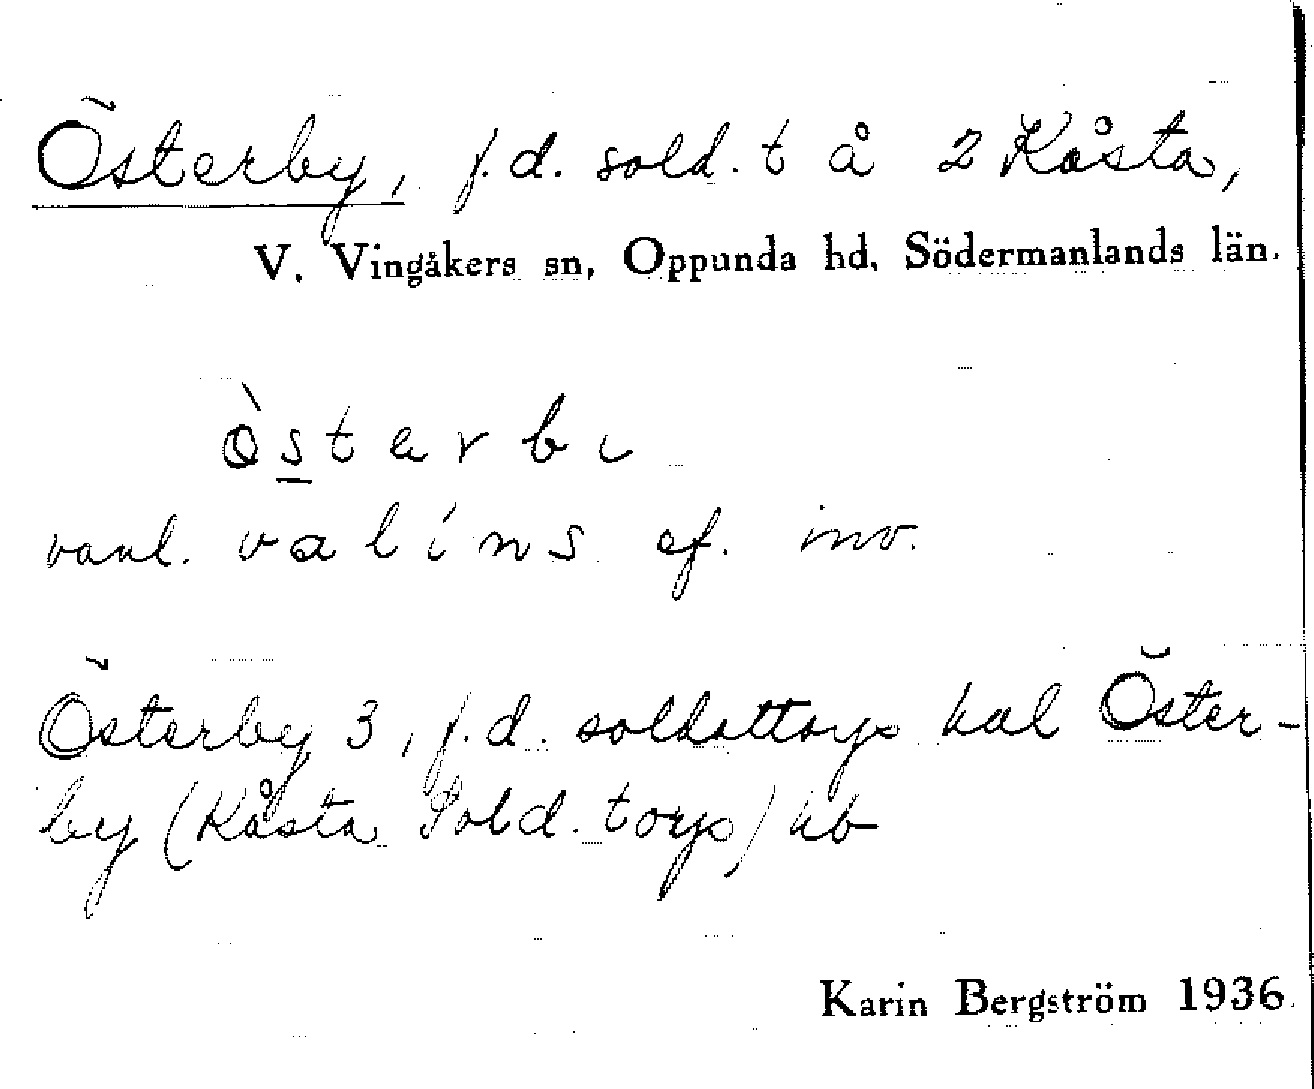 Österby, f.d. sold. t å 2 Kåsta,
V. Vingåkers sn, Oppunda hd, Södermanlands län.
òstarbı
vanl. valíns ef. inv.
Österby 3, f.d. soldattorp kal Öster-
by (Kåsta Sold. torp) hb
Karin Bergström 1936